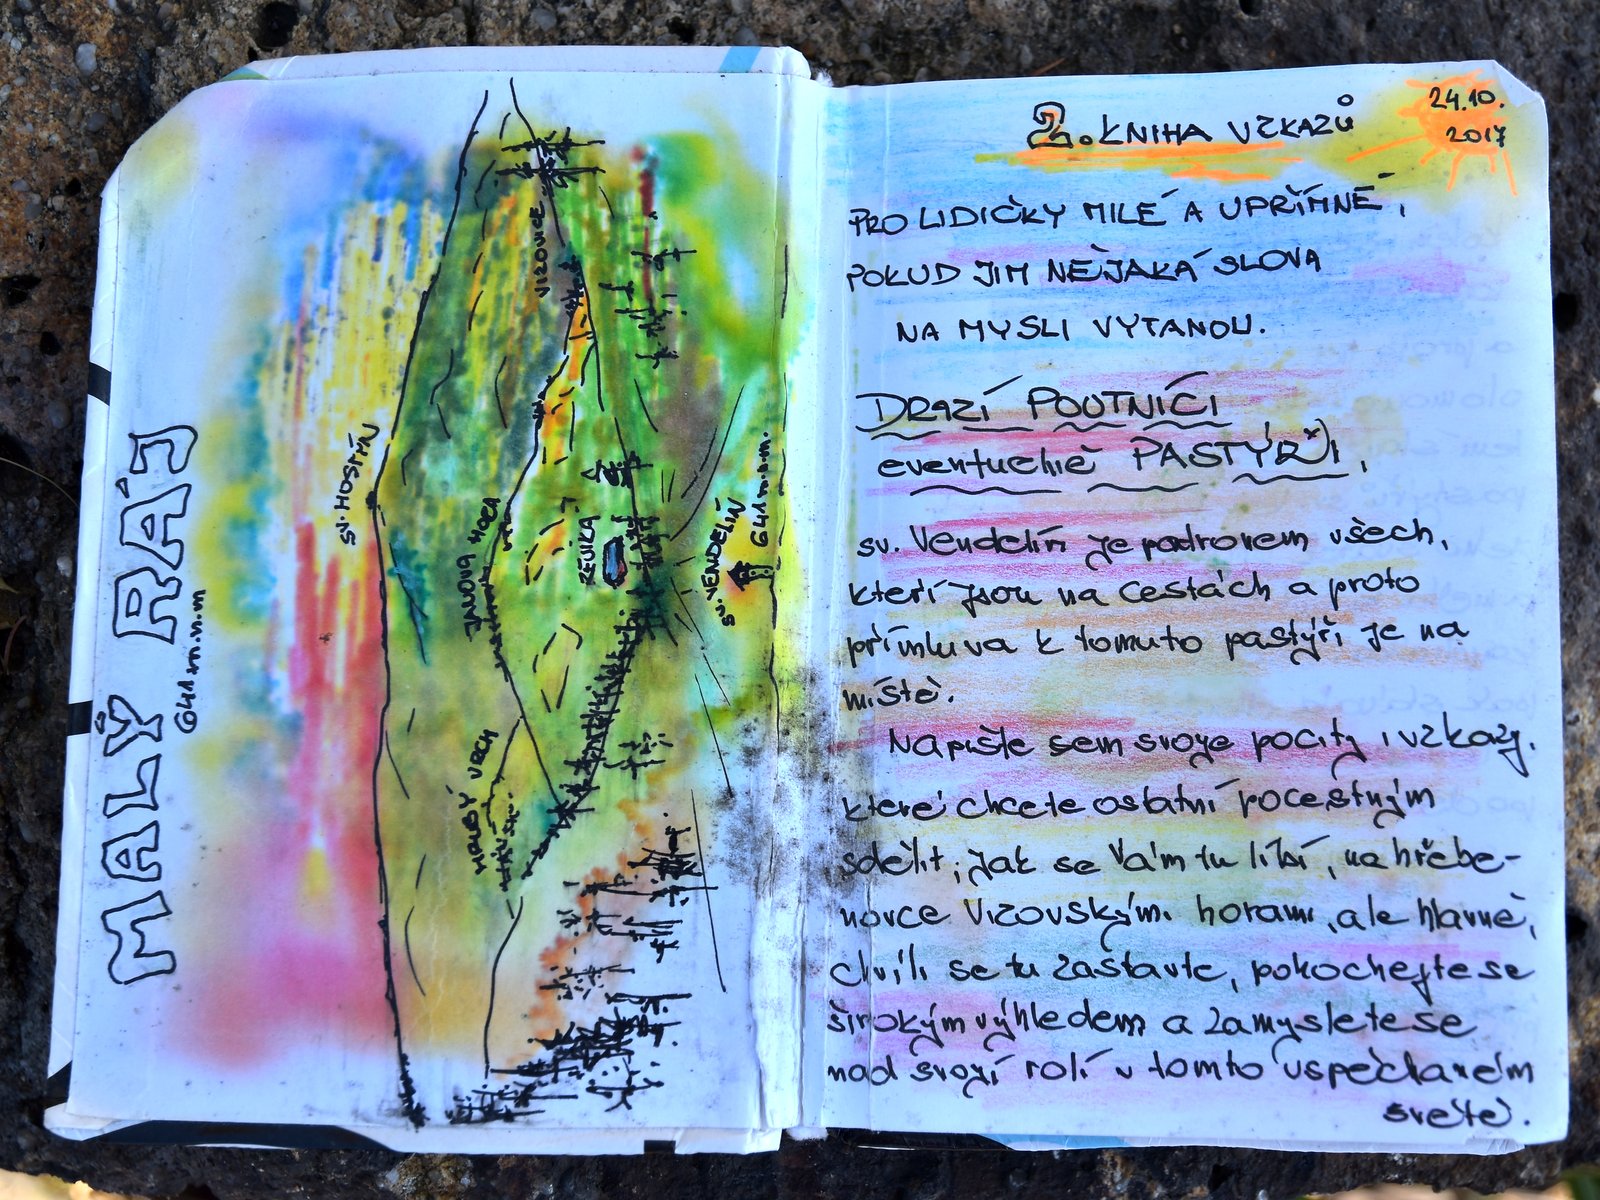 MALÝ RÁJ
641 m.n.m
SV. HOSTÝN
VIZOVICE
JANOVA HORA
REVIKA
HRUBÝ VRCH
SV. VENDELÍN
641 m.n.m.
2. KNIHA VZKAZŮ
24.10.
2017
PRO LIDIČKY MILÉ A UPŘÍMNÉ,
POKUD JIM NĚJAKÁ SLOVA
NA MYSLI VYTANOU.
DRAZÍ POUTNÍCI
eventuelně PASTÝŘI,
sv. Vendelín je patronem všech,
kteří jsou na cestách a proto
přímluva k tomuto pastýři je na
místě.
Napište sem svoje pocity i vzkazy,
které chcete ostatní pocestným
sdělit, jak se Vám tu líbí, na hřebe-
novce Vizovskými horami, ale hlavně,
chvíli se tu zastavte, pokochejte se
širokým výhledem a zamyslete se
nad svojí rolí v tomto uspěchaném
světě.